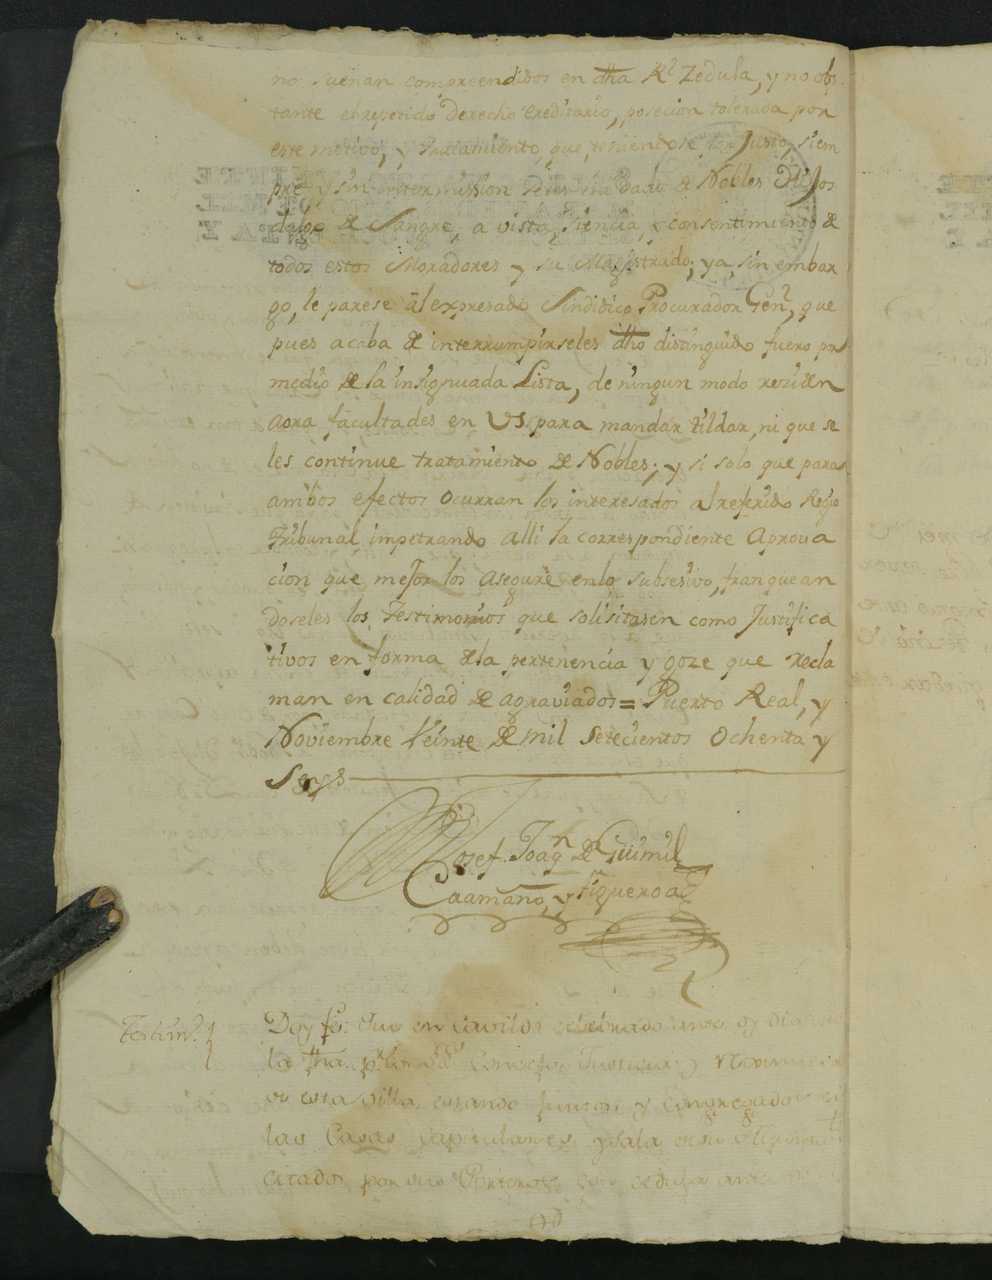 no suenan compreendidos en dha Rl Zedula, y no obs
tante el repetido derecho ereditario, posecion tolerada por
este motivo, y tratamiento, que, teniendose por Justo, siem
pre y sin intermission se les ha dado de Nobles Hijos
dalgo de Sangre, a vista, siencia, y consentimiento de
todos estos Moradores y su Magistrado; ya, sin embar
go, le parese al expresado Sindico Procurador Genl, que
pues acaba de interrumpirseles dho distinguido fuero pr
medio de la insignuada Lista, de ningun modo reziden
aora facultades en VS. para mandar tildar, ni que se
les continue tratamiento de Nobles; y si solo que para
ambos efectos ocurran los interesados al referido Regio
Tribunal impetrando alli la correspondiente Aprova
cion que mejor los asegure en lo subsesivo, franquean
doseles los Testimonios que solisitasen como Justifica
tivos en forma de la pertenencia y goze que recla
man en calidad de agraviados = Puerto Real, y
Noviembre Veinte de mil setecientos ochenta y
seys
Josef Joaqn de Guimil
Caamaño, y Figueroa
Testimo.
Doy fe: Que en cavildo selebrado oy dia de
la fha por los Consejo, Justicia, y Reximiento
de esta villa, estando juntos y congregados en
las Casas Capitulares y sala
citados por sus Porteros, con cedula ante